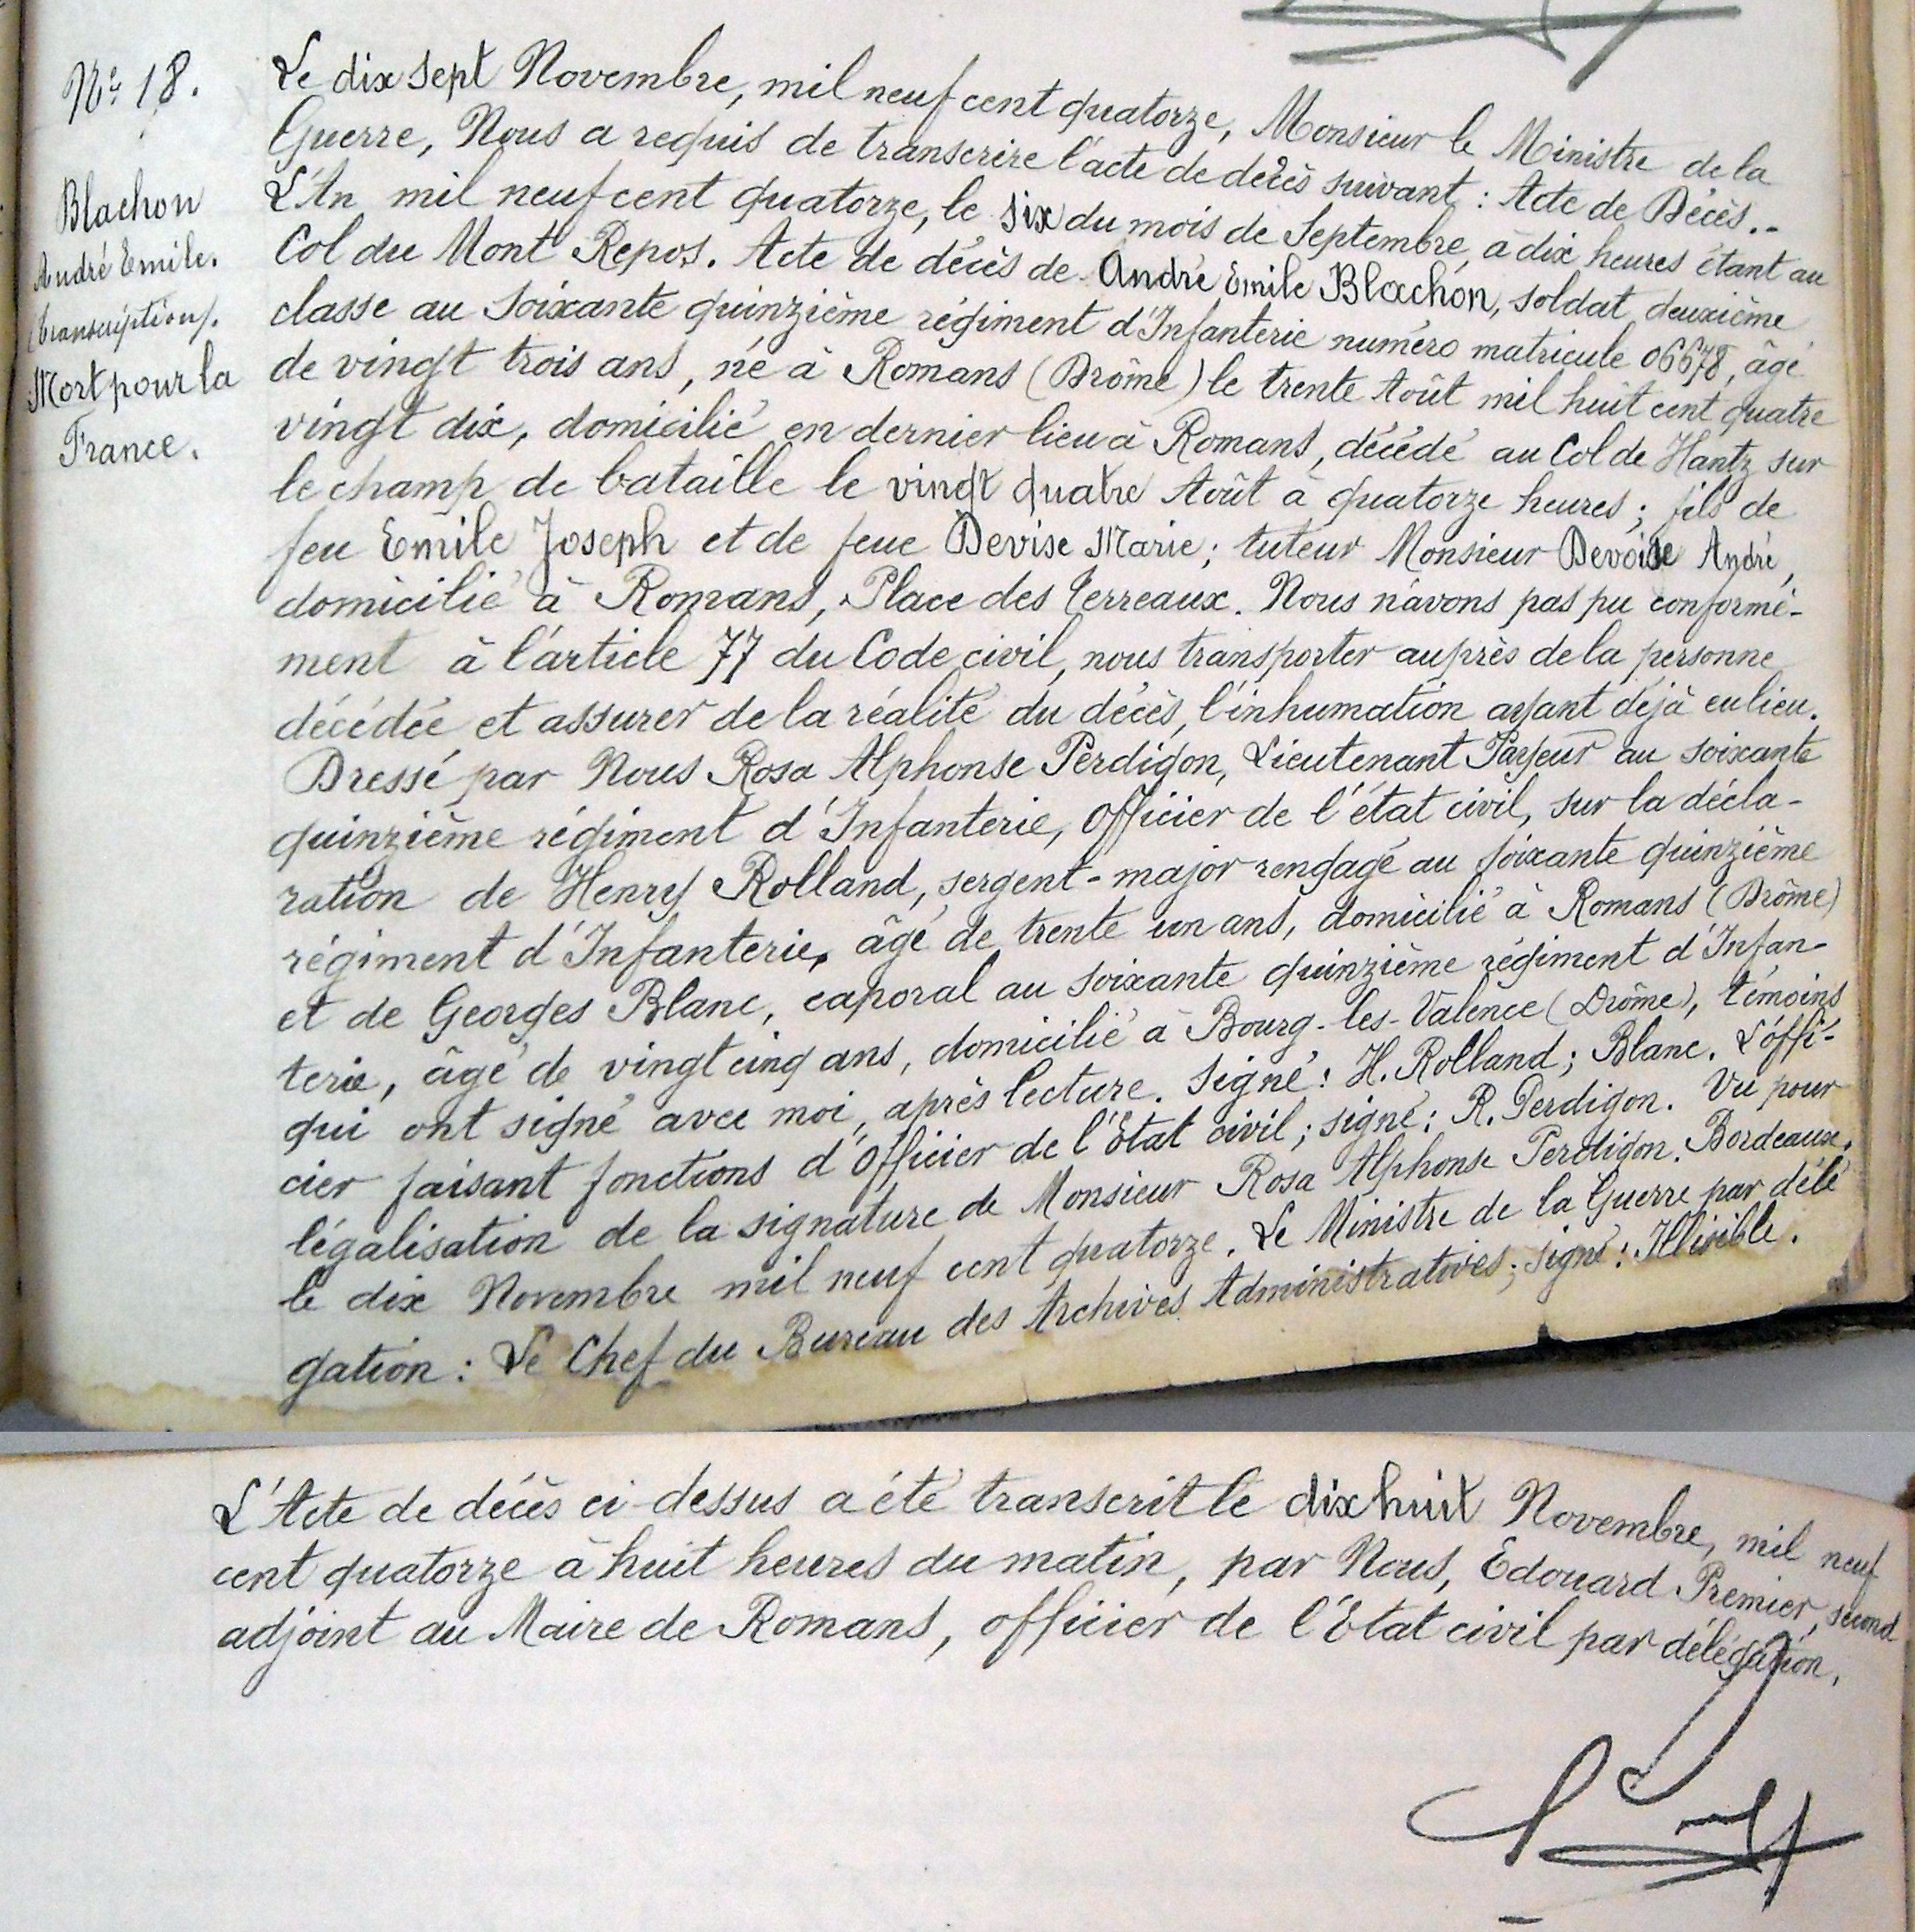 N° 18.
Blachon
André Emile.
(transcription).
Mort pour la
France.
Le dix sept Novembre, mil neuf cent quatorze, Monsieur le Ministre de la
Guerre, Nous a requis de transcrire l'acte de décès suivant : Acte de Décès..
L'An mil neuf cent quatorze, le six du mois de Septembre, à dix heures étant au
Col du Mont Repos. Acte de décès de André Emile Blachon, soldat deuxième
classe au soixante quinzième régiment d'Infanterie numéro matricule 06678, âgé
de vingt trois ans, né à Romans (Drôme) le trente Août mil huit cent quatre
vingt dix, domicilié en dernier lieu à Romans, décédé au Col de Hantz sur
le champ de bataille le vingt quatre Août à quatorze heures ; fils de
feu Emile Joseph et de feue Devise Marie ; tuteur Monsieur Devoise André,
domicilié à Romans, Place des Terreaux. Nous n'avons pas pu conformé-
ment à l'article 77 du Code civil, nous transporter auprès de la personne
décédée et assurer de la réalité du décès, l'inhumation ayant déjà eu lieu.
Dressé par Nous Rosa Alphonse Perdigon, Lieutenant Payeur au soixante
quinzième régiment d'Infanterie, Officier de l'état civil, sur la décla-
ration de Henry Rolland, sergent-major rengagé au soixante quinzième
régiment d'Infanterie, âgé de trente un ans, domicilié à Romans (Drôme)
et de Georges Blanc, caporal au soixante quinzième régiment d'Infan-
terie, âgé de vingt cinq ans, domicilié à Bourg-les-Valence (Drôme), témoins
qui ont signé avec moi, après lecture. Signé : H. Rolland ; Blanc. L'offi-
cier faisant fonctions d'Officier de l'Etat civil ; signé : R. Perdigon. Vu pour
légalisation de la signature de Monsieur Rosa Alphonse Perdigon. Bordeaux,
le dix Novembre mil neuf cent quatorze. Le Ministre de la Guerre par délé
gation : Le Chef du Bureau des Archives Administratives ; signé : Illisible.
L'Acte de décès ci-dessus a été transcrit le dix huit Novembre, mil neuf
cent quatorze à huit heures du matin, par Nous, Edouard Premier, second
adjoint au Maire de Romans, officier de l'Etat civil par délégation.